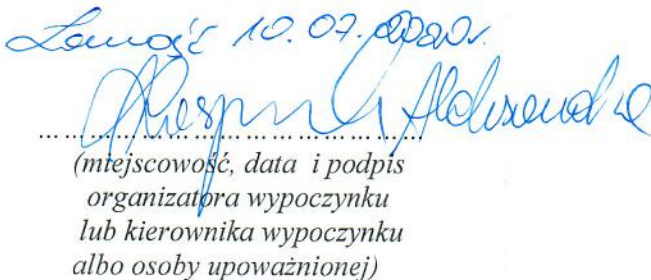 Zamość 10.07.2020r.
Aleksandra
........................................................
(miejscowość, data i podpis
organizatora wypoczynku
lub kierownika wypoczynku
albo osoby upoważnionej)